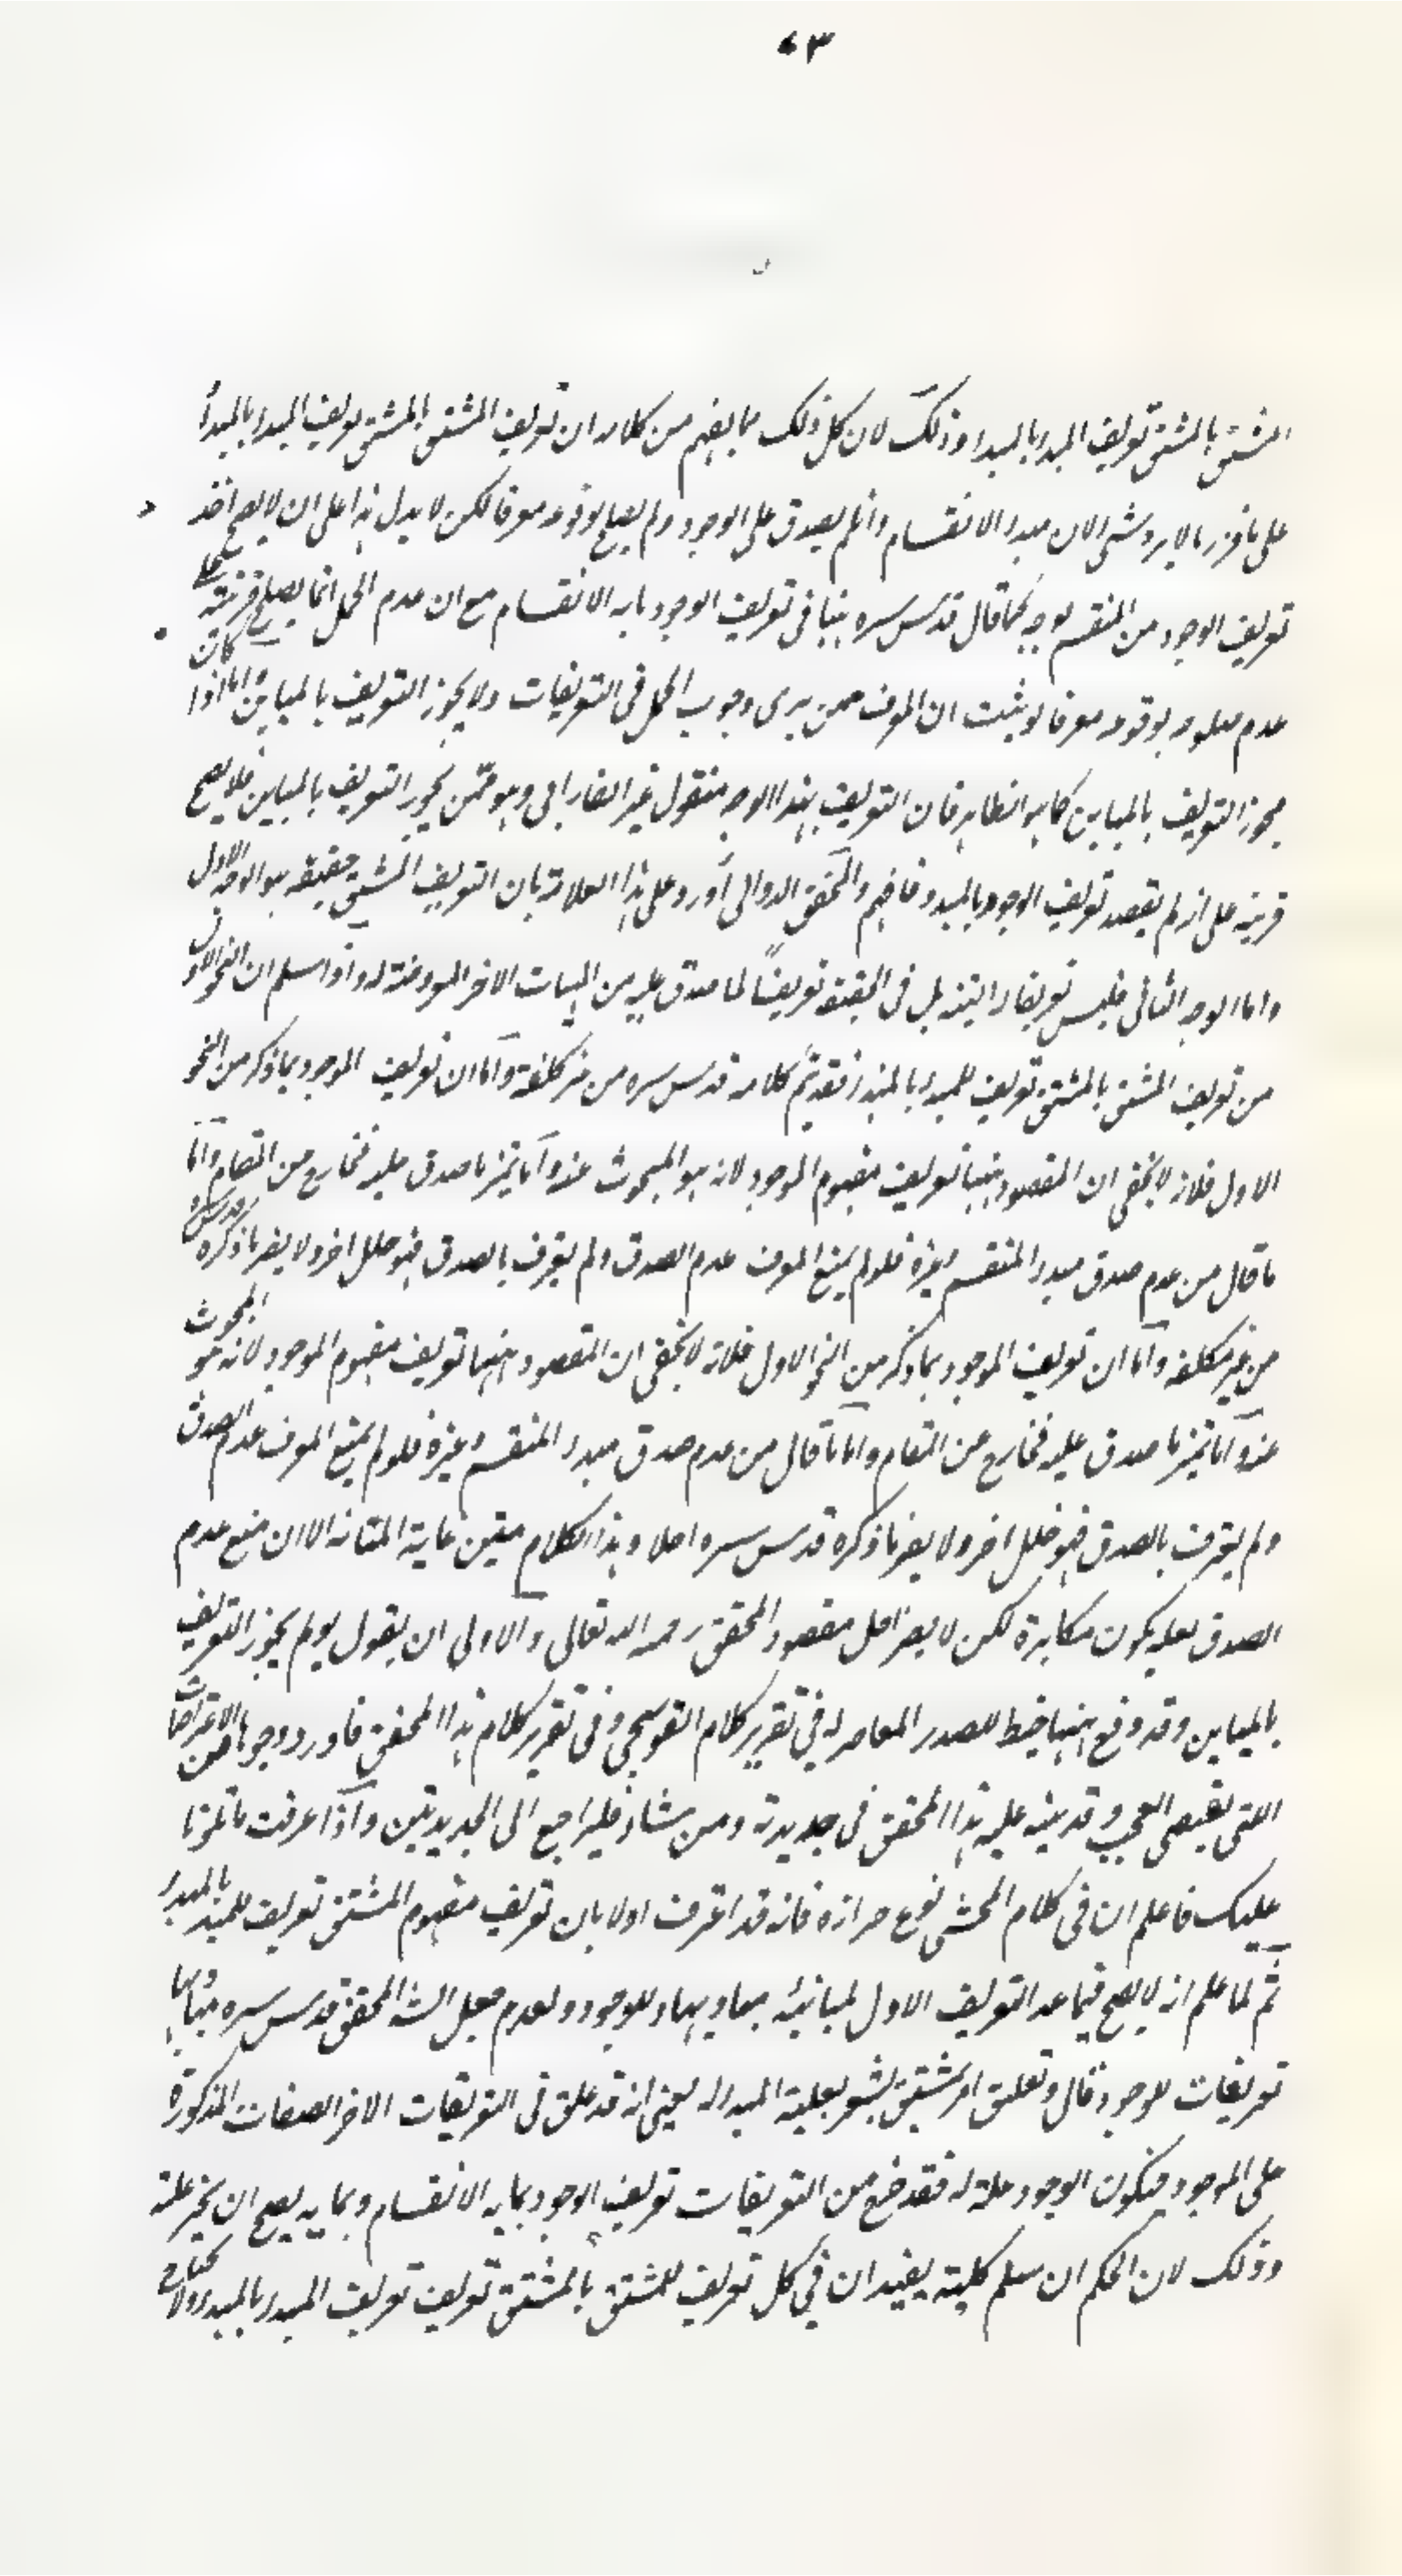 ٤٣
المشتق بالمشتق تعريف المبدء بالمبدء وذلك لان كل ذلك مما يفهم من كلامه ان تعريف المشتق بالمشتق تعريف المبدء بالمبدأ
على ما قرر بالا يرد شى لان مبدء الانقسام وان لم يصدق على الوجود ولم يصلح لوقوعه معرفا لكن لا يدل هذا على ان لا يصح اخذ
تعريف الوجود من المنقسم بوجه كما قال قدس سره ههنا فى تعريف الوجود ما به الانقسام مع ان عدم الحمل انما يصلح قرينة على
عدم صلوحه بوقوعه معرفا لو يثبت ان المعرف ممن يرى وجوب الحمل فى التعريفات ولا يجوز التعريف بالمباين واما اذا كان
مجوز التعريف بالمباين كما هو الظاهر فان التعريف بهذا الوجه منقول عن الفارابى وهو ممن يجوز التعريف بالمباين فلا يصح
قرينة على انه لم يقصد تعريف الوجود بالمبدء فافهم والمحقق الدوانى أورد على هذا العلامة بان التعريف المشتق حقيقة هو الوجه الاول
واما الوجه الثانى فليس تعريفا له البتة بل فى الحقيقة تعريفاً لما صدق عليه من الهيات الاخر المعروضة له واذا سلم ان النحو الاول
من تعريف المشتق بالمشتق تعريف للمبدء بالمبدء فقد تم كلامه قدس سره من غير كلفة وأما ان تعريف الموجود بما ذكر من النحو
الاول فلانه لا يخفى ان المقصود ههنا تعريف مفهوم الموجود لانه هو المبحوث عنه وأما تميز ما صدق عليه فخارج من المقام وأما
ما قال من عدم صدق مبدء المنقسم وغيره فلو لم يمنع المعرف عدم الصدق ولم يعترف بالصدق فهو خلل اخر ولا يضر ما ذكره قدس سره
من غير تكلفه وأما ان تعريف الموجود بما ذكر من النحو الاول فلانه لا يخفى ان المقصود ههنا تعريف مفهوم الموجود لانه هو المبحوث
عنه وأما تميز ما صدق عليه فخارج عن المقام واما ما قال من عدم صدق مبدء المنقسم وغيره فلو لم يمنع المعرف عدم الصدق
ولم يعترف بالصدق فهو خلل اخر ولا يضر ما ذكره قدس سره اصلا وهذا الكلام متين غاية المتانة الا ان منع عدم
الصدق لعله يكون مكابرة لكن لا يضر اصل مقصود المحقق رحمه الله تعالى والاولى ان يقول لو لم يجوز التعريف
بالمباين وقد وقع ههنا خبط للصدر المعاصر له فى تقرير كلام القوسجى وفى تقرير كلام هذا المحقق فاورد وجوها من الاعتراضات
التى يقضى العجب وقد نبه عليه هذا المحقق فى جديدته ومن شاء فليراجع الى الجديدتين وأذا عرفت ما تلونا
عليك فاعلم ان فى كلام المحشى نوع حزازه فانه قد اعترف اولا بان تعريف مفهوم المشتق تعريف للمبدء بالمبدء
ثم لما علم انه لا يصح فيما عدا التعريف الاول لمباينة مباديها للوجود ولعدم جعل الشه المحقق قدس سره مباديها
تعريفات للوجود قال وتعليق امر بمشتق يشعر بعلية المبدء له يعنى انه قد علق فى التعريفات الاخر الصفات المذكورة
على الموجود فيكون الوجود علة له فقد خرج من التعريفات تعريف الوجود بما به الانقسام وبما به يصح ان يخبر عنه
وذلك لان الحكم ان سلم كلية يفيد ان فى كل تعريف للمشتق بالمشتق تعريف تعريف المبدء بالمبدء ولا يحتاج